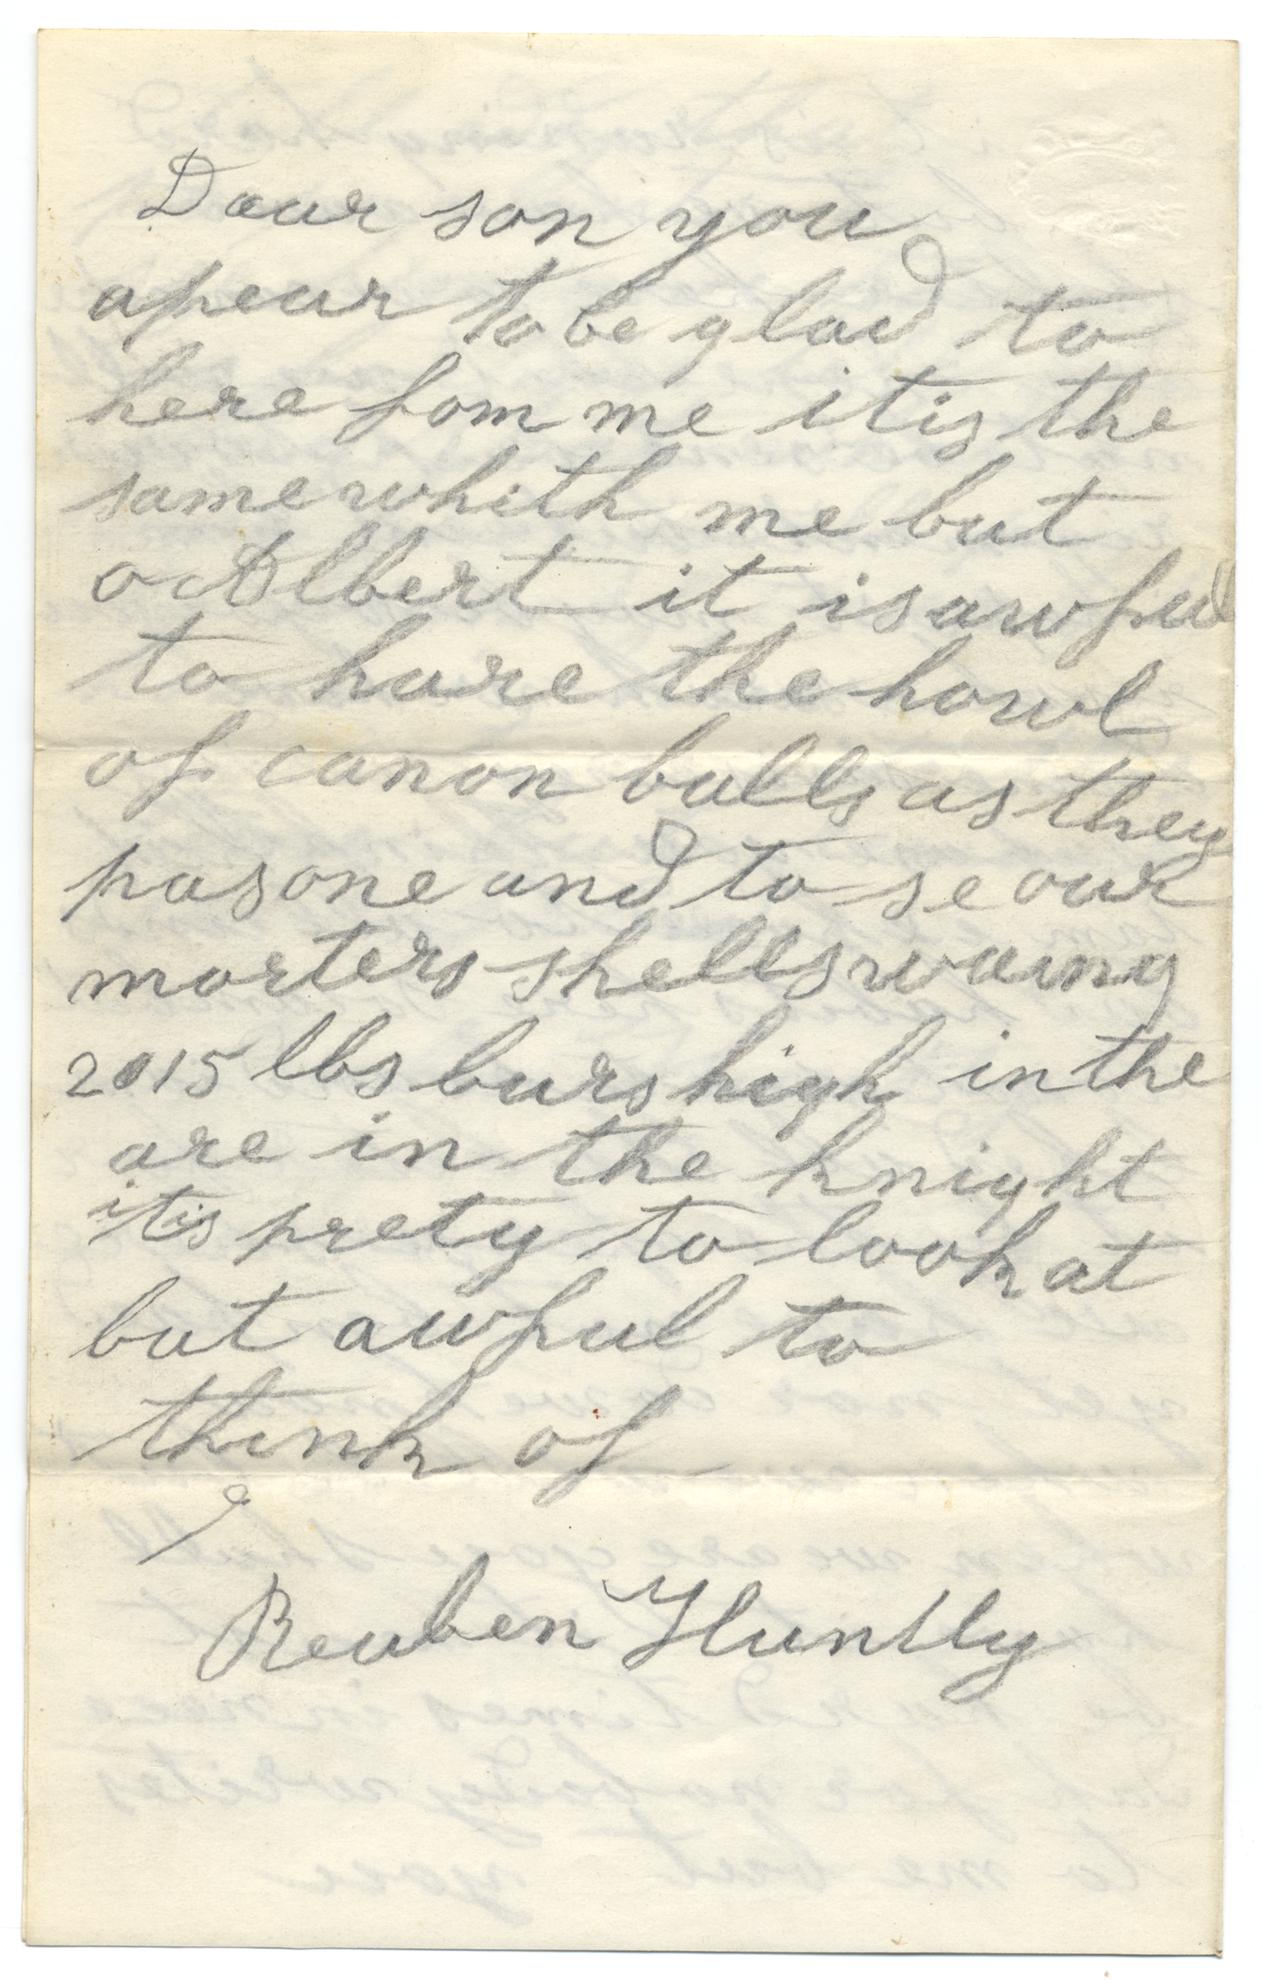 Deaur son you
apeur to be glad to
here fom me it is the
same whith me but
o Albert it is awful
to hare the howl
of canon balls as they
pas one and to se our
morters shells waing
2015 lbs burs high in the
are in the knight
itis prety to look at
but awful to
think of
Reuben Huntly